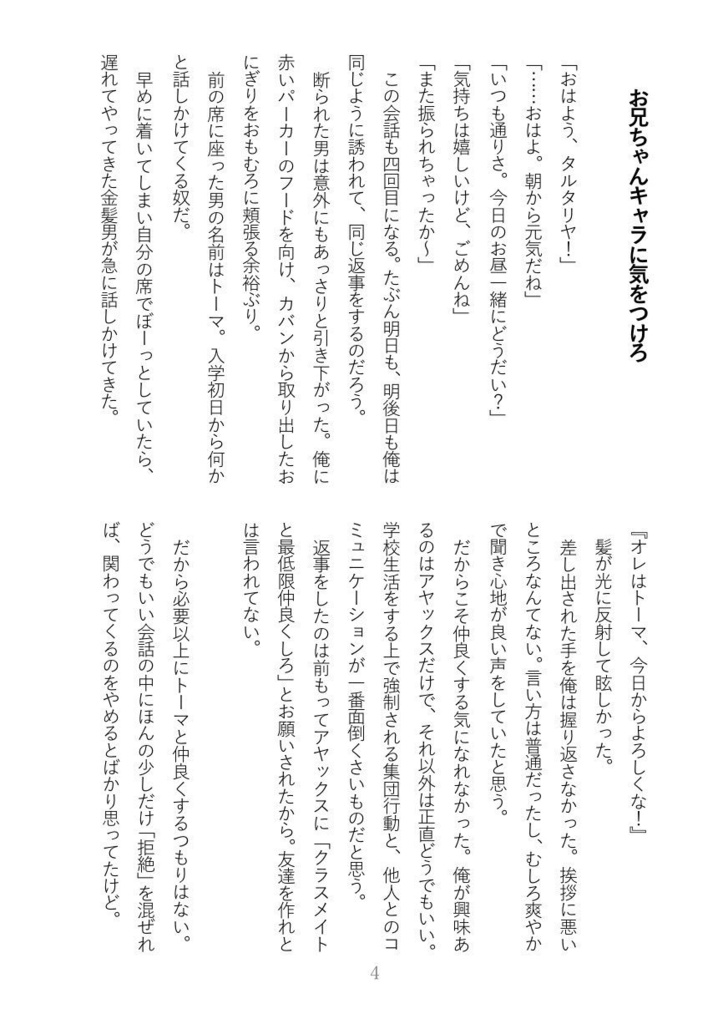 お兄ちゃんキャラに気をつけろ
「おはよう、タルタリヤ！」
「……おはよ。朝から元気だね」
「いつも通りさ。今日のお昼一緒にどうだい？」
「気持ちは嬉しいけど、ごめんね」
「また振られちゃったか～」
この会話も四回目になる。たぶん明日も、明後日も俺は
同じように誘われて、同じ返事をするのだろう。
断られた男は意外にもあっさりと引き下がった。俺に
赤いパーカーのフードを向け、カバンから取り出したお
にぎりをおもむろに頬張る余裕ぶり。
前の席に座った男の名前はトーマ。入学初日から何か
と話しかけてくる奴だ。
早めに着いてしまい自分の席でぼーっとしていたら、
遅れてやってきた金髪男が急に話しかけてきた。
『オレはトーマ、今日からよろしくな！』
髪が光に反射して眩しかった。
差し出された手を俺は握り返さなかった。挨拶に悪い
ところなんてない。言い方は普通だったし、むしろ爽やか
で聞き心地が良い声をしていたと思う。
だからこそ仲良くする気になれなかった。俺が興味あ
るのはアヤックスだけで、それ以外は正直どうでもいい。
学校生活をする上で強制される集団行動と、他人とのコ
ミュニケーションが一番面倒くさいものだと思う。
返事をしたのは前もってアヤックスに「クラスメイト
と最低限仲良くしろ」とお願いされたから。友達を作れと
は言われてない。
だから必要以上にトーマと仲良くするつもりはない。
どうでもいい会話の中にほんの少しだけ「拒絶」を混ぜれ
ば、関わってくるのをやめるとばかり思ってたけど。
4